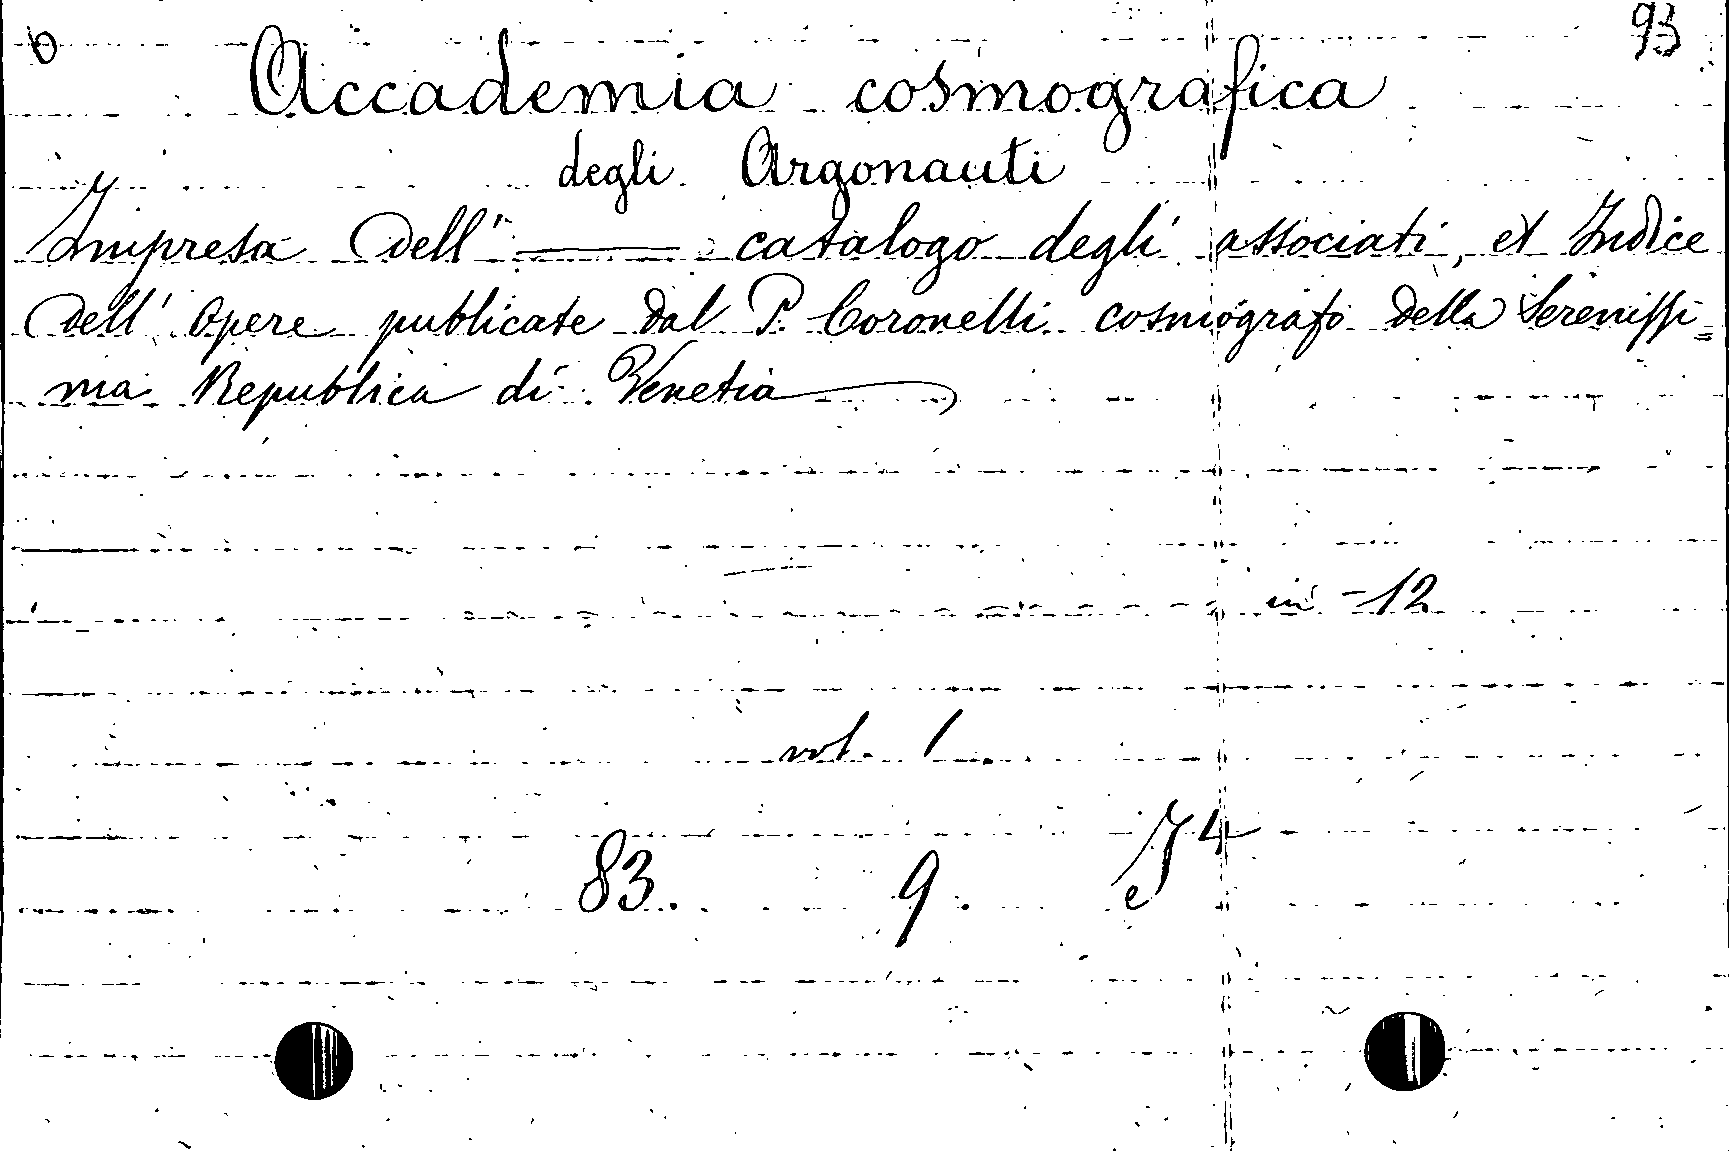 93
Accademia cosmografica
degli Argonauti
Impresa dell' ——— catalogo degli associati, et Indice
dell' Opere publicate dal P. Coronelli cosmografo della Serenissi=
ma Republica di Venetia
in - 12
vol. 1
83. 9. J4